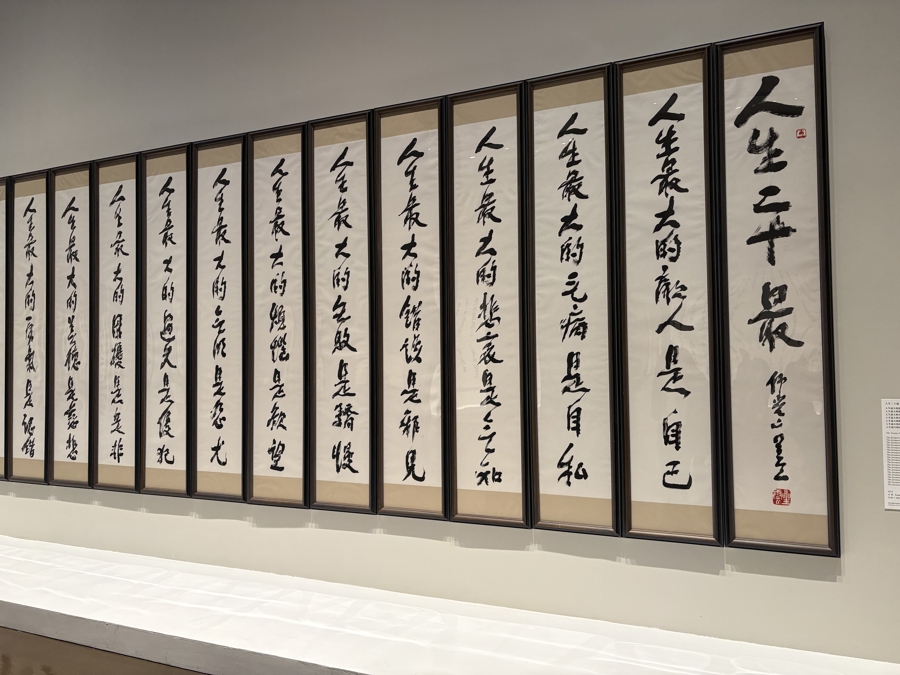 人生二十最
佛光山星雲
人生最大的敵人是自己
人生最大的毛病是自私
人生最大的悲哀是無知
人生最大的錯誤是邪見
人生最大的失敗是驕慢
人生最大的煩惱是欲望
人生最大的無明是怨尤
人生最大的過失是侵犯
人生最大的困擾是是非
人生最大的美德是慈悲
人生最大的勇氣是認錯